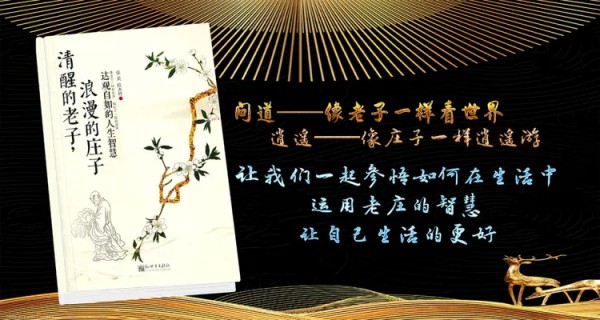 清醒的老子，
浪漫的庄子
达观自如的人生智慧
问道——像老子一样看世界
逍遥——像庄子一样逍遥游
让我们一起参悟如何在生活中
运用老庄的智慧
让自己生活的更好